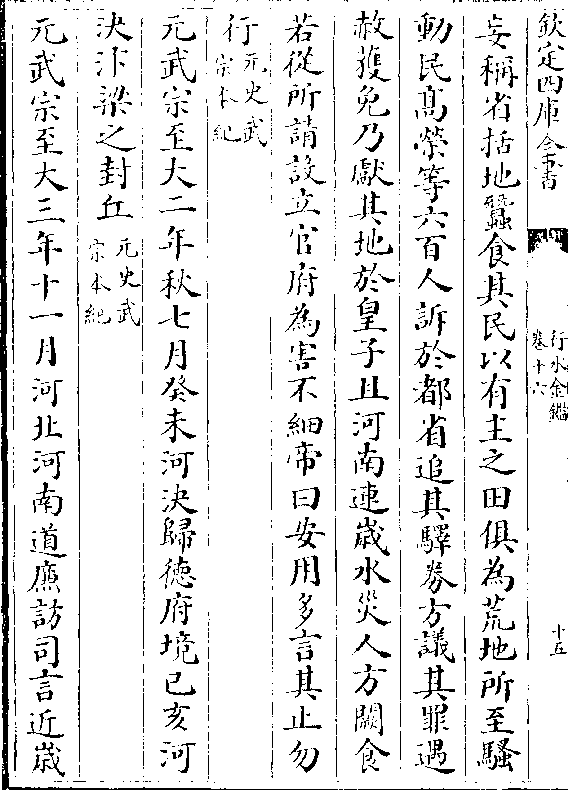 欽定四庫全書
行水金鑑
卷十六
十五
妄稱省括地蠶食其民以有主之田俱為荒地所至騷
動民髙榮等六百人訴於都省追其驛劵方議其罪遇
赦獲免乃獻其地於皇子且河南連嵗水災人方闕食
若從所請設立官府為害不細帝曰安用多言其止勿
行元史武宗本紀
元武宗至大二年秋七月癸未河決歸徳府境已亥河
決汴梁之封丘元史武宗本紀
元武宗至大三年十一月河北河南道廉訪司言近嵗